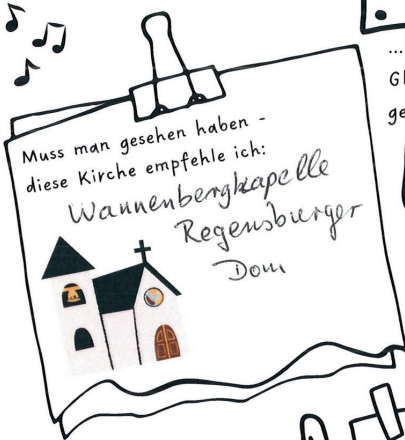 Muss man gesehen haben -
diese Kirche empfehle ich:
Wannenbergkapelle
Regensburger
Dom
...
Gl
ge